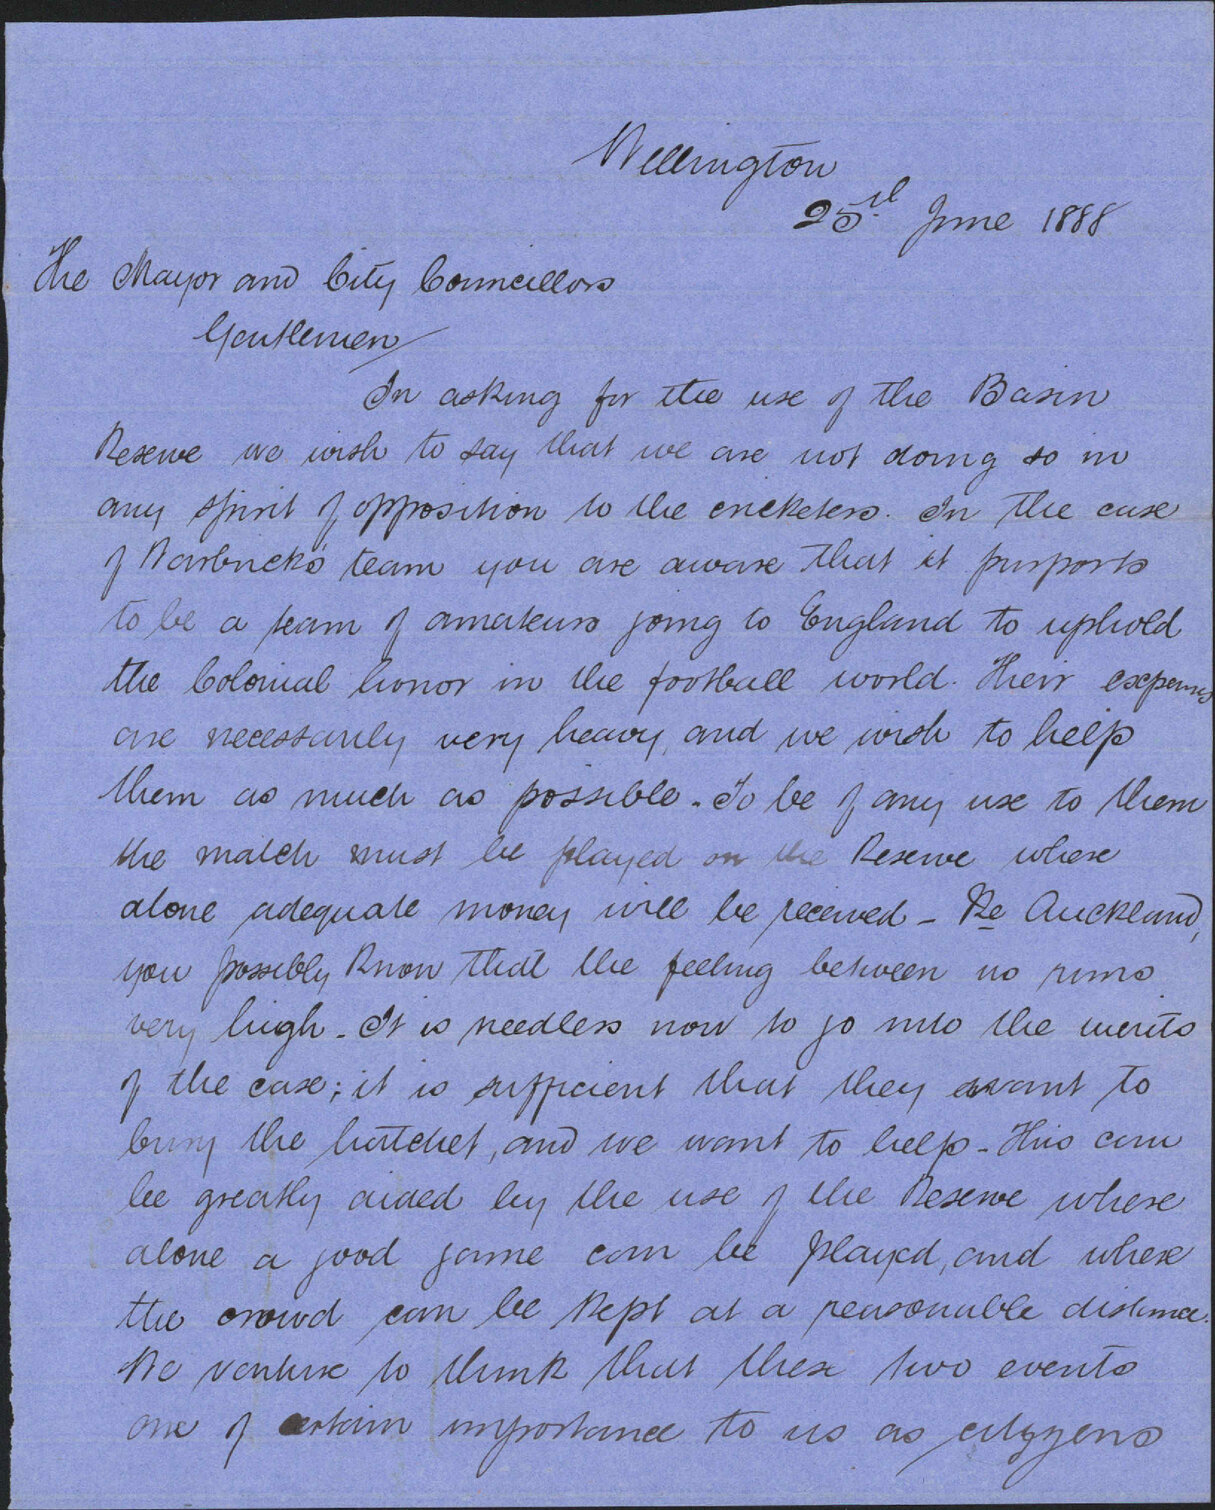 Wellington
25th June 1888
The Mayor and City Councillors
Gentlemen
In asking for the use of the Basin
Reserve we wish to say that we are not doing so in
any spirit of opposition to the cricketers. In the case
of Warbrick's team you are aware that it purports
to be a team of amateurs going to England to uphold
the Colonial honor in the football world. Their expenses
are necessarily very heavy, and we wish to help
them as much as possible. To be of any use to them
the match must be played on the Reserve where
alone adequate money will be received - Re Auckland,
you possibly know that the feeling between us runs
very high - It is needless now to go into the merits
of the case; it is sufficient that they want to
bury the hatchet, and we want to help - This can
be greatly aided by the use of the Reserve where
alone a good game can be played, and where
the crowd can be kept at a reasonable distance.
We venture to think that these two events
are of certain importance to us as citizens